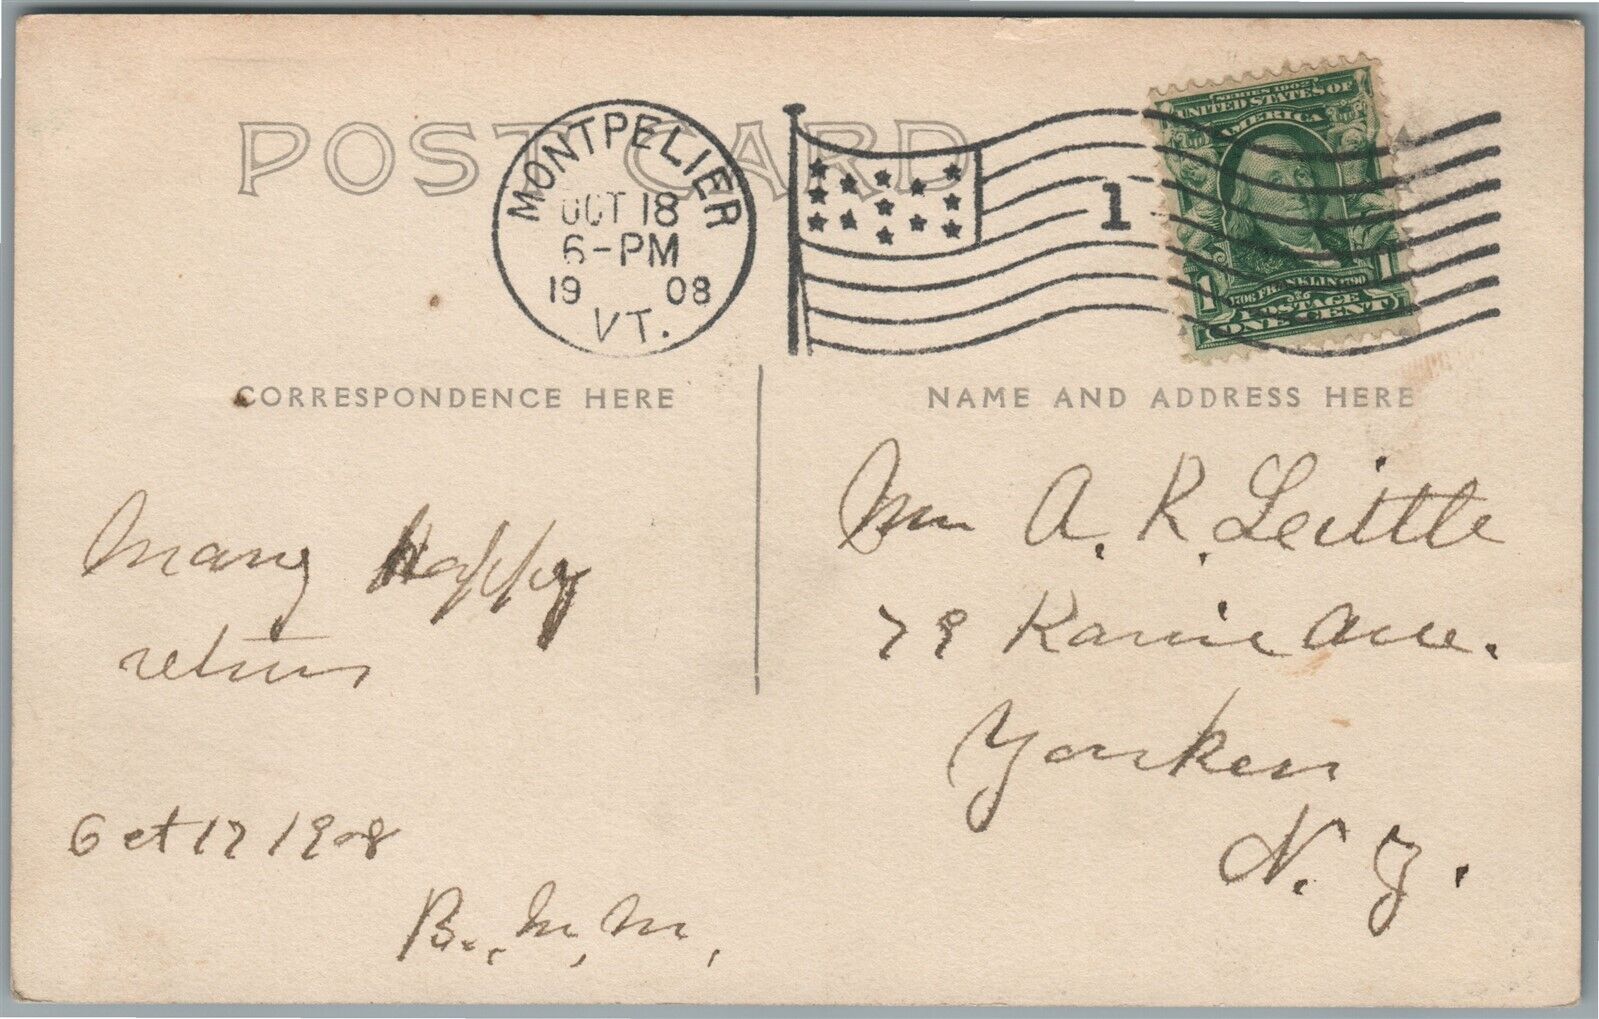 POST CARD
MONTPELIER
OCT 18
6-PM
19 08
VT.
1
SERIES 1902
UNITED STATES OF
AMERICA
1706 FRANKLIN 1790
1 POSTAGE 1
ONE CENT
CORRESPONDENCE HERE
NAME AND ADDRESS HERE
Many Happy
returns
Oct 17 1908
B. M. M.
A. R. Leittle
79 Ave.
Yonkers
N. Y.